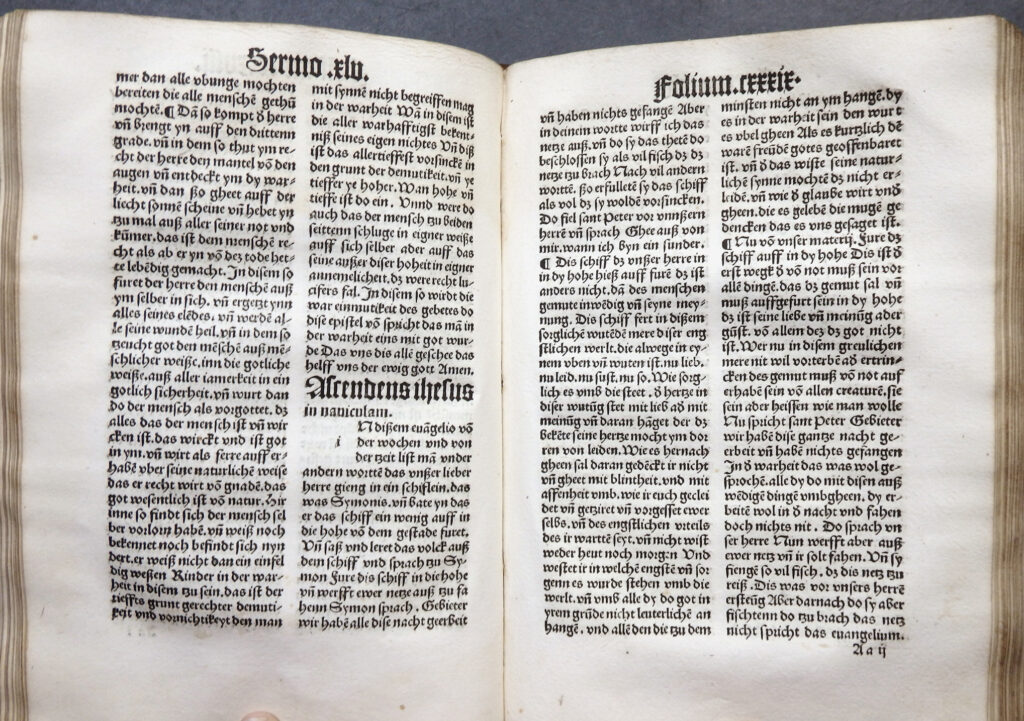 Sermo .xlv.
mer dan alle vbunge mochten
bereiten die alle menschē gethū
mochtē.¶ Dā so kompt d̄ herre
vn̄ brengt yn auff den drittenn
grade. vn̄ in dem so thut ym re-
cht der herre den mantel vō den
augen vn̄ entdeckt ym dy war-
heit. vn̄ dan ßo gheet auff der
liecht sonnē scheine vn̄ hebet yn
tzu mal auß aller seiner not vnd
kūmer. das ist dem menschē re-
cht als ab er yn vō dez tode het-
te lebēdig gemacht. Jn disem so
furet der herre den menschē auß
ym selber in sich. vn̄ ergetzt ynn
alles seines elēdes. vn̄ werdē al-
le seine wundē heil. vn̄ in dem so
tzeucht got den mēschē auß mē-
schlicher weiße. inn die gotliche
weiße. auß aller iamerkeit in ein
gotlich sicherheit. vn̄ wurt dan
do der mensch als vorgottet. dz
alles das der mensch ist vn̄ wir
cken ist. das wirckt vnd ist got
in ym. vn̄ wirt als ferre auff er-
habē vber seine naturlichē weise
das er recht wirt vō gnadē. das
got wesentlich ist vō natur. Hir
inne so findt sich der mensch sel
ber vorlorn habē. vn̄ weiß noch
bekennet noch befindt sich nyn
dert. er weiß nicht dan ein einfel
dig weßen Kinder in der war-
heit in disem tzu sein. das ist der
tieffts grunt gerechter demuti-
keit vnd vornichtikeyt den man
mit synnē nicht begreiffen mag
in der warheit Wā in disem ist
die aller warhafftigst bekent-
niß seines eigen nichtes Vn̄ diß
ist das allertieffest vorsinckē in
den grunt der demutikeit. vn̄ ye
tieffer ye hoher. Wan hohe vn̄
tieffe ist do ein. Vnnd were do
auch das der mensch tzu beiden
seittenn schluge in eigner weiße
auff sich selber ader auff das
seine außer diser hoheit in eigner
annemelicheit. dz were recht lu-
cifers fal. Jn disem so wirdt die
war einmutikeit des gebetes do
dise epistel vō spricht das mā in
der warheit eins mit got wur-
de Das vns dis allē geschee das
helff vns der ewig gott Amen.
Ascendens ihesus
in nauiculam.
i N dißem euāgelio vō
der wochen vnd von
der tzeit list mā vnder
andern worttē das vnßer lieber
herre gieng in ein schiflein. das
was Symonis. vn̄ bate yn das
er das schiff ein wenig auff in
die hohe vō dem gestade furet.
Vn̄ saß vnd leret das volck auß
dem schiff vnd sprach tzu Sy-
mon Fure dis schiff in die hohe
vn̄ werfft ewer netze auß tzu fa
henn Symon sprach. Gebieter
wir habē alle dise nacht geerbeit
Folium.cxxxix.
vn̄ haben nichts gefangē Aber
in deinem wortte wirff ich das
netze auß. vn̄ do sy das thetē do
beschlossen sy als vil fisch dz dz
netze tzu brach Nach vil andern
worttē. ßo erfulletē sy das schiff
als vol dz sy woldē vorsincken.
Do fiel sant Peter vor vnnßern
herrē vn̄ sprach Ghee auß von
mir. wann ich byn ein sunder.
¶ Dis schiff dz vnßer herre in
in dy hohe hieß auff furē dz ist
anders nicht. dā des menschen
gemute inwēdig vn̄ seyne mey-
nung. Dis schiff fert in dißem
sorglichē wutēdē mere diser eng
stlichen werlt. die alwege in ey-
nem vben vn̄ wuten ist. nu lieb.
nu leid. nu sust. nu so. Wie sorg-
lich es vmb die steet. d̄ hertze in
diser wutūg stet mit lieb ad̄ mit
meinūg vn̄ daran hāget der dz
bekēte seine hertze mocht ym dor
ren von leiden. Wie es hernach
gheen sal daran gedēckt ir nicht
vn̄ gheet mit blintheit. vnd mit
affenheit vmb. wie ir euch geclei
det vn̄ getziret vn̄ vorgesset ewer
selbs. vn̄ des engstlichen vrteils
des ir wartē seyt. vn̄ nicht wist
weder heut noch morgn Vnd
westet ir in welchē engstē vn̄ sor
genn es wurde stehen vmb die
werlt. vn̄ vmb alle dy do got in
yrem grūde nicht leuterlichē an
hangē. vnd allē den die tzu dem
minsten nicht an ym hangē. dy
es in der warheit sein den wurt
es vbel gheen Als es kurtzlich dē
warē freūdē gotes geoffenbaret
ist. vn̄ d̄ das wiste seine natur-
lichē synne mochtē dz nicht er-
lidēn. vn̄ wie d̄ glaube wirt vnd̄
gheen. die es gelebē die mugē ge
dencken das es vns gesaget ist.
¶ Nu vō vnser materij. Fure dz
schiff auff in dy hohe Dis ist d̄
erst wegk d̄ vō not muß sein vor
allē dingē. das dz gemut sal vn̄
muß auffgefurt sein in dy hohe
dz ist seine liebe vn̄ meinūg ader
gūst. vō allem dez dz got nicht
ist. Wer nu in disem greulichen
mere nit wil vorterbē ad̄ ertrin-
cken des gemut muß vō not auf
erhabē sein vō allen creaturē. sie
sein ader heissen wie man wolle
Nu spricht sant Peter Gebieter
wir habē dise gantze nacht ge-
erbeit vn̄ habē nichts gefangen
Jn d̄ warheit das was wol ge-
sprochē. alle dy do mit disen auß
wēdigē dingē vmbgheen. dy er-
beitē wol in d̄ nacht vnd fahen
doch nichts nit. Do sprach vn
ser herre Nun werfft aber auß
ewer netz vn̄ ir solt fahen. Vn̄ sy
fiengē so vil fisch. dz dis netz tzu
reiß. Dis was vor vnsers herrē
ersteūg Aber darnach do sy aber
fischtenn do tzu brach das netz
nicht spricht das euangelium.
Aa ij